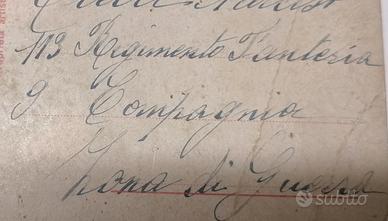 113 Regimento Fanteria
9 Compagnia
Zona di Guerra
subito